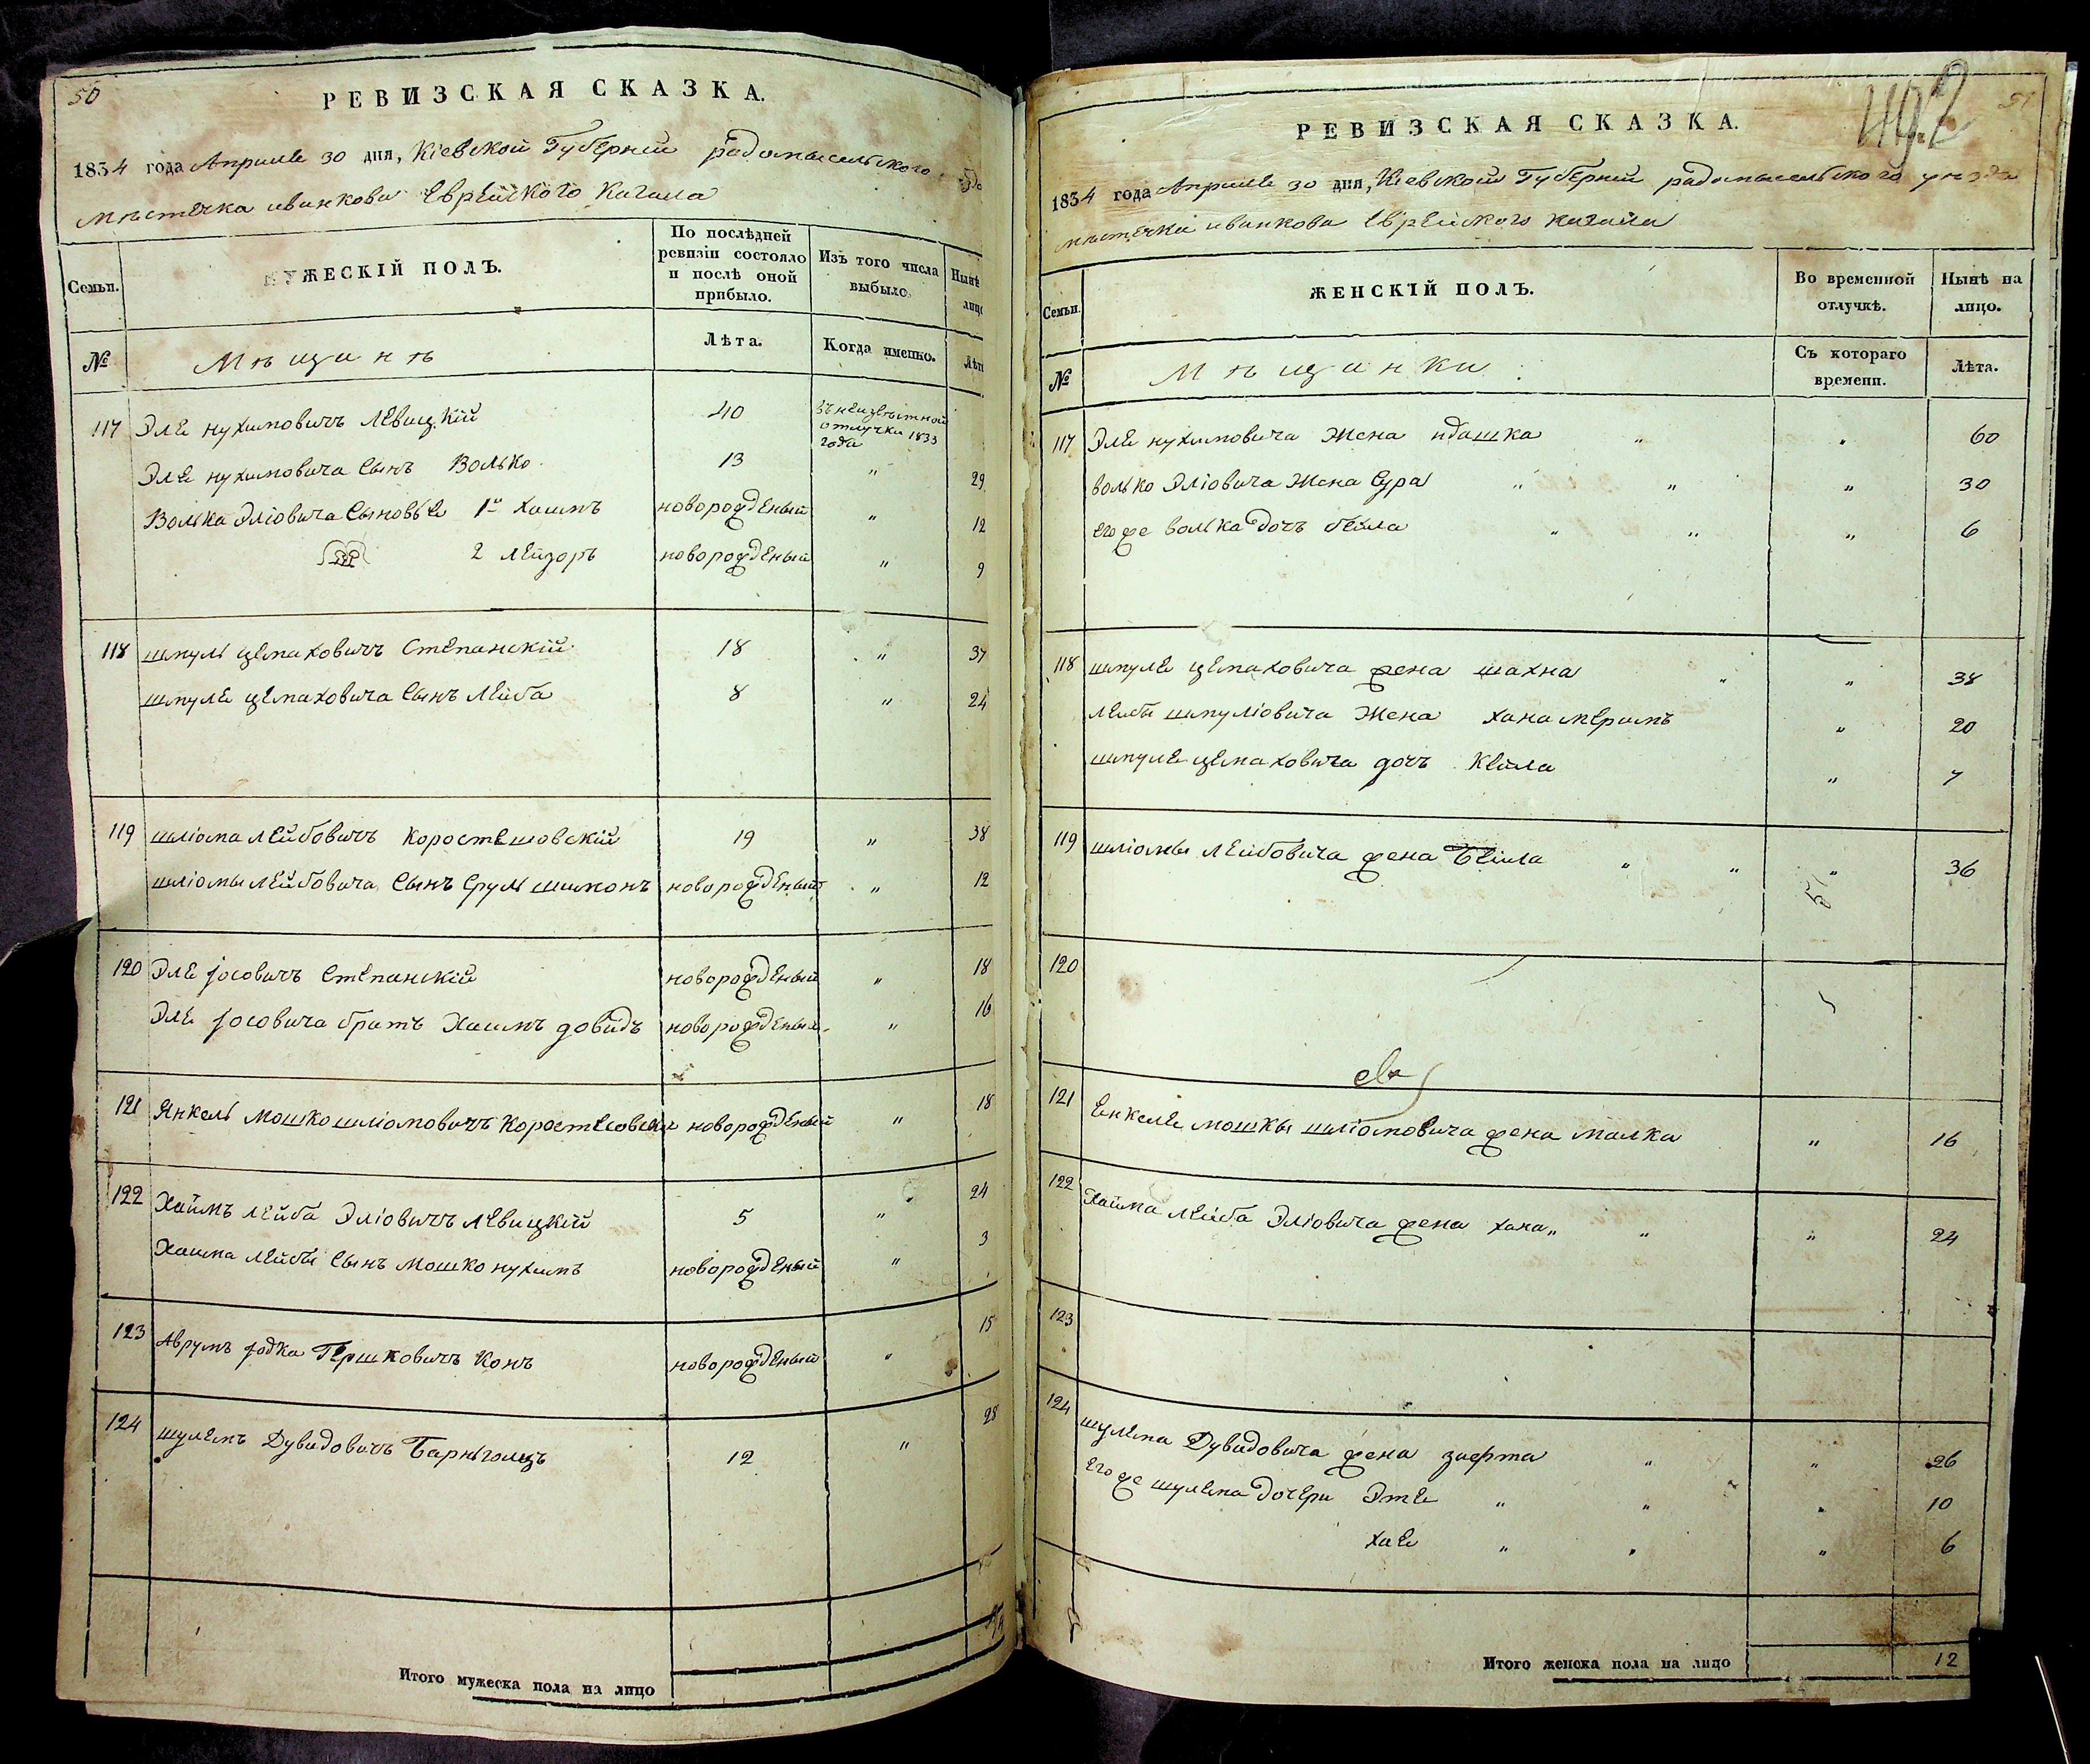 50
РЕВИЗСКАЯ СКАЗКА.
1834 года Апреля 30 дня, Кіевской Губерніи радомысльского
мѣстечка иванкова Еврейского Кагала
Семьи.
МУЖЕСКІЙ ПОЛЪ.
По послѣдней ревизіи состояло и послѣ оной прибыло.
Изъ того числа выбыло.
Нынѣ лицо
№
Мѣщанѣ
Лѣта.
Когда именно.
Лѣта
117 Эле нухимовичъ Левицкій 40 въ неизвѣстной отлучки 1833 года
Эле нухимовича Сынъ Волько 13 " 29
Волька Эліовича Сыновье 1й Хаимъ новорожденый " 12
2 Лейзоръ новорожденый " 9
118 шмуль цемаховичъ Степанскій 18 " 37
шмуле цемаховича Сынъ Лейба 8 " 24
119 шліома лейбовичъ Коростешовскій 19 " 38
шліомы лейбовича Сынъ Сруль шимонъ новорожденый " 12
120 Эле Іосовичъ Степанскій новорожденый " 18
Эле Іосовича братъ Хаимъ довидъ новорожденый " 16
121 Янкель Мошко шліомовичъ новорожденый " 18
122 Хаймъ Лейба Эліовичъ Левицкій 5 " 24
Хаима Лейбы Сынъ Мошко нухимъ новорожденый " 3
123 Аврумъ Іодка Гершковичъ Конъ новорожденый " 15
124 шулемъ Дувидовичъ 12 " 28
Итого мужеска пола на лицо
51
РЕВИЗСКАЯ СКАЗКА.
1834 года Апреля 30 дня, Кіевской Губерніи радомысльского уѣзда
мѣстечка иванкова Еврейского кагала
Семьи.
ЖЕНСКІЙ ПОЛЪ.
Во временной отлучкѣ.
Нынѣ на лицо.
№
Мѣщанки
Съ котораго времени.
Лѣта.
117 Эле нухимовича Жена идашка " " 60
волько Эліовича Жена Сура " " " 30
его же волька дочъ бейла " " " 6
118 шмуле цемаховича жена шахна " " 38
лейбы шмуліовича Жена хана мерымъ " 20
шмуле цемаховича дочъ Кейла " 7
119 шліомы лейбовича жена Бейла " " " 36
120
121 Енкеле мошкы шліомовича жена малка " 16
122 Хайма Лейба Эліовича жена хана " " " 24
123
124 шулема Дувидовича жена " " 26
его же шулема дочери Эте " " " 10
хае " " " 6
Итого женска пола на лицо 12